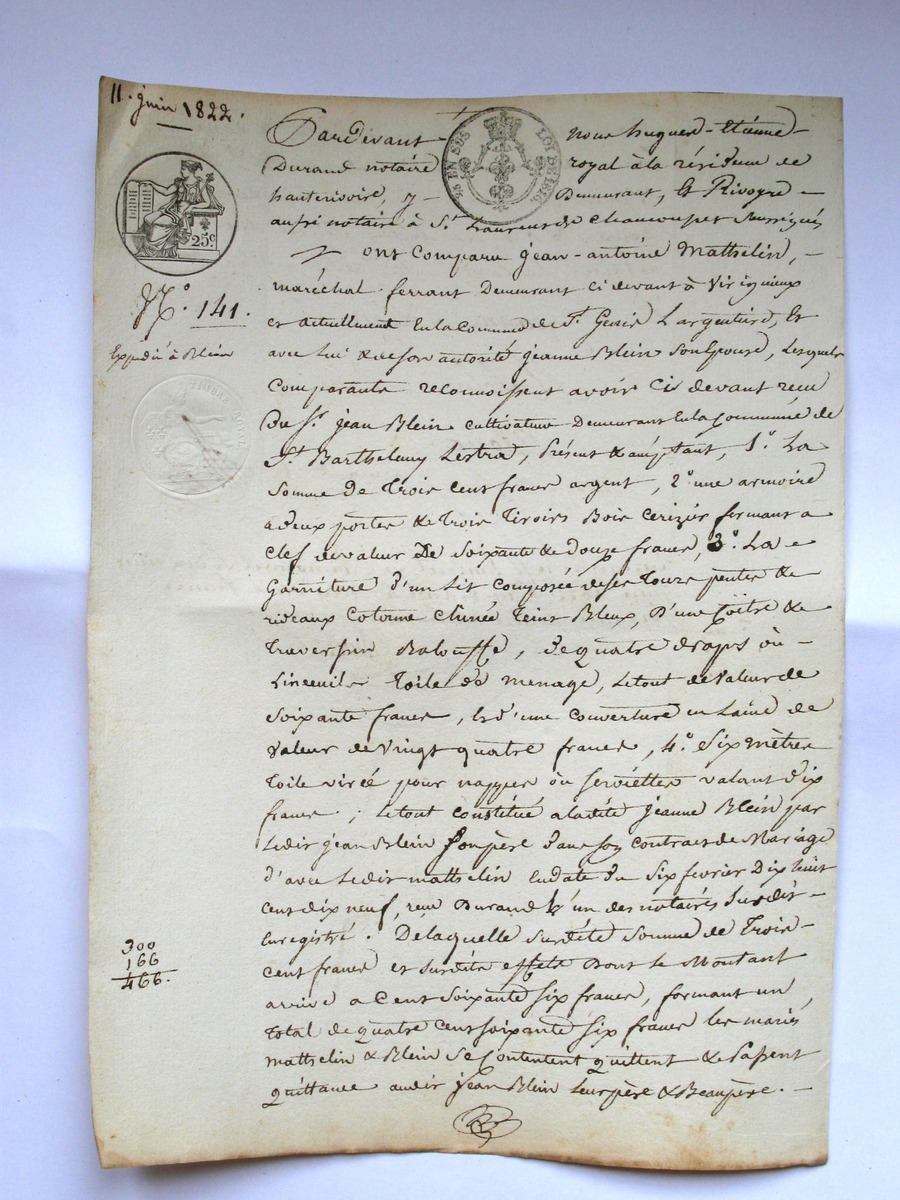 11. juin 1822.
Pardevant nous hugues-Etienne
Durand notaire royal à la résidence de
hauterivoire, y Demeurant, Et Rivoyre
aussi notaire à St. Laurent de Chamousset Soussignés
ont comparu jean-antoine Matthelin,
maréchal ferrant Demeurant ci devant à Virigneux
et actuellement En la Commune de St. Genis L'argentiere, Et
avec Lui & de son autorité jeanne Blein Son Epouse, Lesquels
Comparants reconnoissent avoir Ci devant reçu
Du Sr. jean Blein cultivateur Demeurant En la Commune de
St. Barthelemy Lestra, Présent & acceptant, 1.° La
Somme De Trois Cent francs argent, 2.° une armoire
a deux portes & Trois Tiroirs Bois Cerizier fermant a
Clef de valeur De Soixante & Douze francs, 3.° La
Garniture d'un Lit Composée de ses Tours pentes &
rideaux Cotonne Chinée Teint Bleux, D'une Coitre &
Traversin Balouffe, de quatre draps où
Linceuils Toile de menage, Le tout de Valeur de
Soixante francs, Et d'une Couverture en Laine de
Valeur de Vingt quatre francs, 4.° Six mètres
Toile virée pour nappes où serviettes valant Dix
francs; Le tout Constitué a ladite jeanne Blein par
Ledit jean Blein Son père Dans son Contract de Mariage
d'avec Ledit matthelin En date du Six février Dix huit
Cent dix neuf, reçu Durand L'un des notaires Susdit
Enregistré. De laquelle Susdite Somme de Trois
Cent francs et Susdits effets Dont le Montant
arrive a Cent Soixante Six francs, formant un
Total de quatre Cent soixante Six francs les mariés
matthelin & Blein Se Contentent quittent & Passent
quittance audit jean Blein Leur père & Beaupère.
25 EN SUS
LOI DE 1816
25c
N.° 141.
Expédié à Blein
TIMBRE ROYAL
300
166
466.